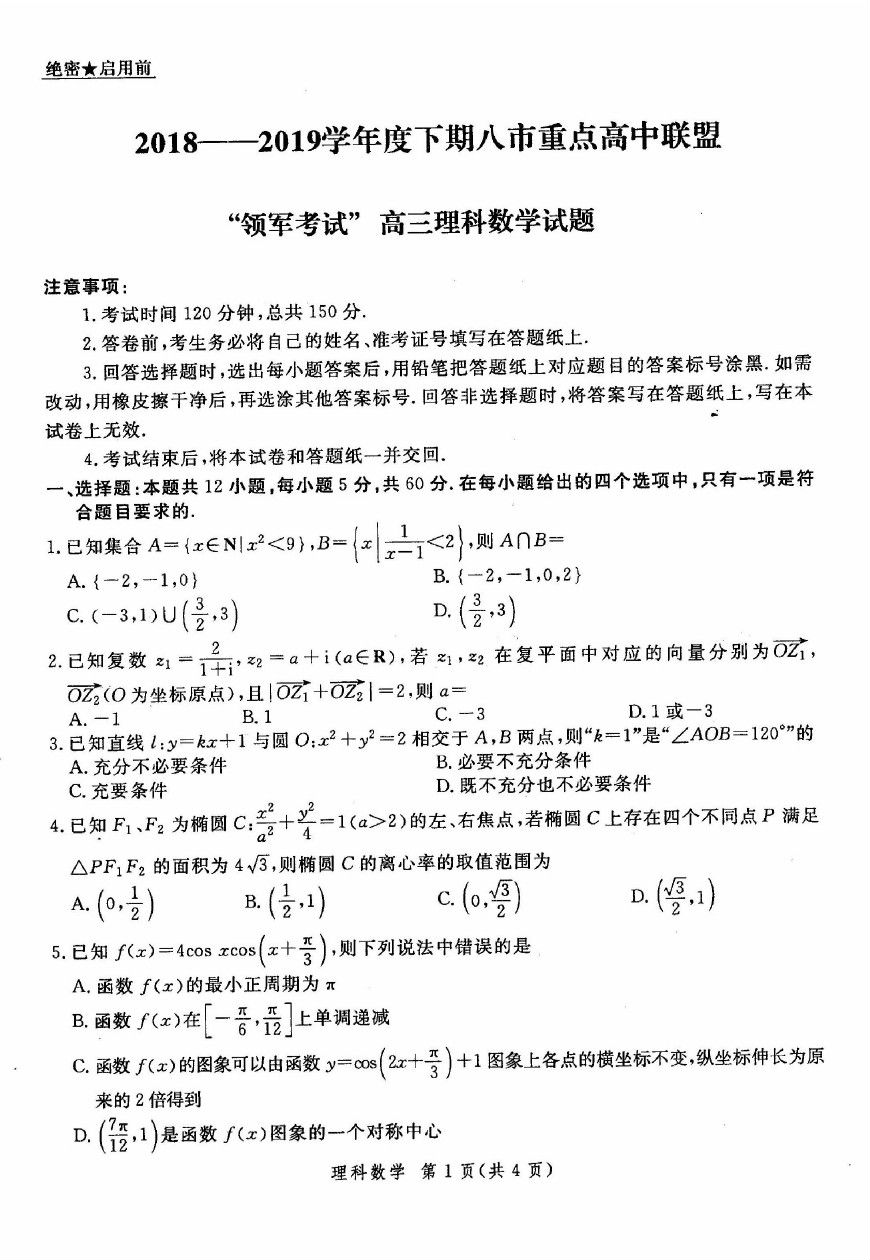 绝密★启用前
2018——2019学年度下期八市重点高中联盟
“领军考试” 高三理科数学试题
注意事项:
1.考试时间 120 分钟,总共 150 分.
2.答卷前,考生务必将自己的姓名、准考证号填写在答题纸上.
3.回答选择题时,选出每小题答案后,用铅笔把答题纸上对应题目的答案标号涂黑.如需
改动,用橡皮擦干净后,再选涂其他答案标号.回答非选择题时,将答案写在答题纸上,写在本
试卷上无效.
4.考试结束后,将本试卷和答题纸一并交回.
一、选择题:本题共 12 小题,每小题 5 分,共 60 分.在每小题给出的四个选项中,只有一项是符
合题目要求的.
1.已知集合 A={x∈N|x²<9},B={x|1/(x−1)<2},则 A∩B=
A.{−2,−1,0} B.{−2,−1,0,2}
C.(−3,1)∪(3/2,3) D.(3/2,3)
2.已知复数 z₁=2/(1+i),z₂=a+i(a∈R),若 z₁,z₂ 在复平面中对应的向量分别为 OZ₁→,
OZ₂→(O 为坐标原点),且|OZ₁→+OZ₂→|=2,则 a=
A.−1 B.1 C.−3 D.1 或−3
3.已知直线 l:y=kx+1 与圆 O:x²+y²=2 相交于 A,B 两点,则“k=1”是“∠AOB=120°”的
A.充分不必要条件 B.必要不充分条件
C.充要条件 D.既不充分也不必要条件
4.已知 F₁、F₂ 为椭圆 C:x²/a²+y²/4=1(a>2)的左、右焦点,若椭圆 C 上存在四个不同点 P 满足
△PF₁F₂ 的面积为 4√3,则椭圆 C 的离心率的取值范围为
A.(0,1/2) B.(1/2,1) C.(0,√3/2) D.(√3/2,1)
5.已知 f(x)=4cos xcos(x+π/3),则下列说法中错误的是
A.函数 f(x)的最小正周期为 π
B.函数 f(x)在[−π/6,π/12]上单调递减
C.函数 f(x)的图象可以由函数 y=cos(2x+π/3)+1 图象上各点的横坐标不变,纵坐标伸长为原
来的 2 倍得到
D.(7π/12,1)是函数 f(x)图象的一个对称中心
理科数学 第 1 页(共 4 页)